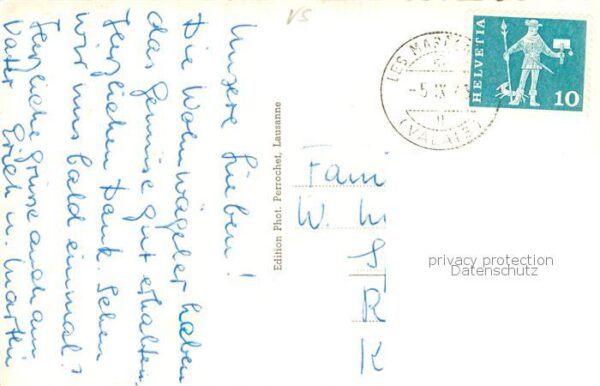 VS
Unsere Lieben!
Die Wohnwägeler haben
das Gemüse gut erhalten.
Herzlichen Dank. Sehen
wir uns bald einmal?
Herzliche Grüsse auch an
Vater Erich u. Marthi
Edition Phot. Perrochet, Lausanne
LES MA
-5.IX
(VALAIS)
HELVETIA
10
Fami
W. M
S
R
K
privacy protection
Datenschutz